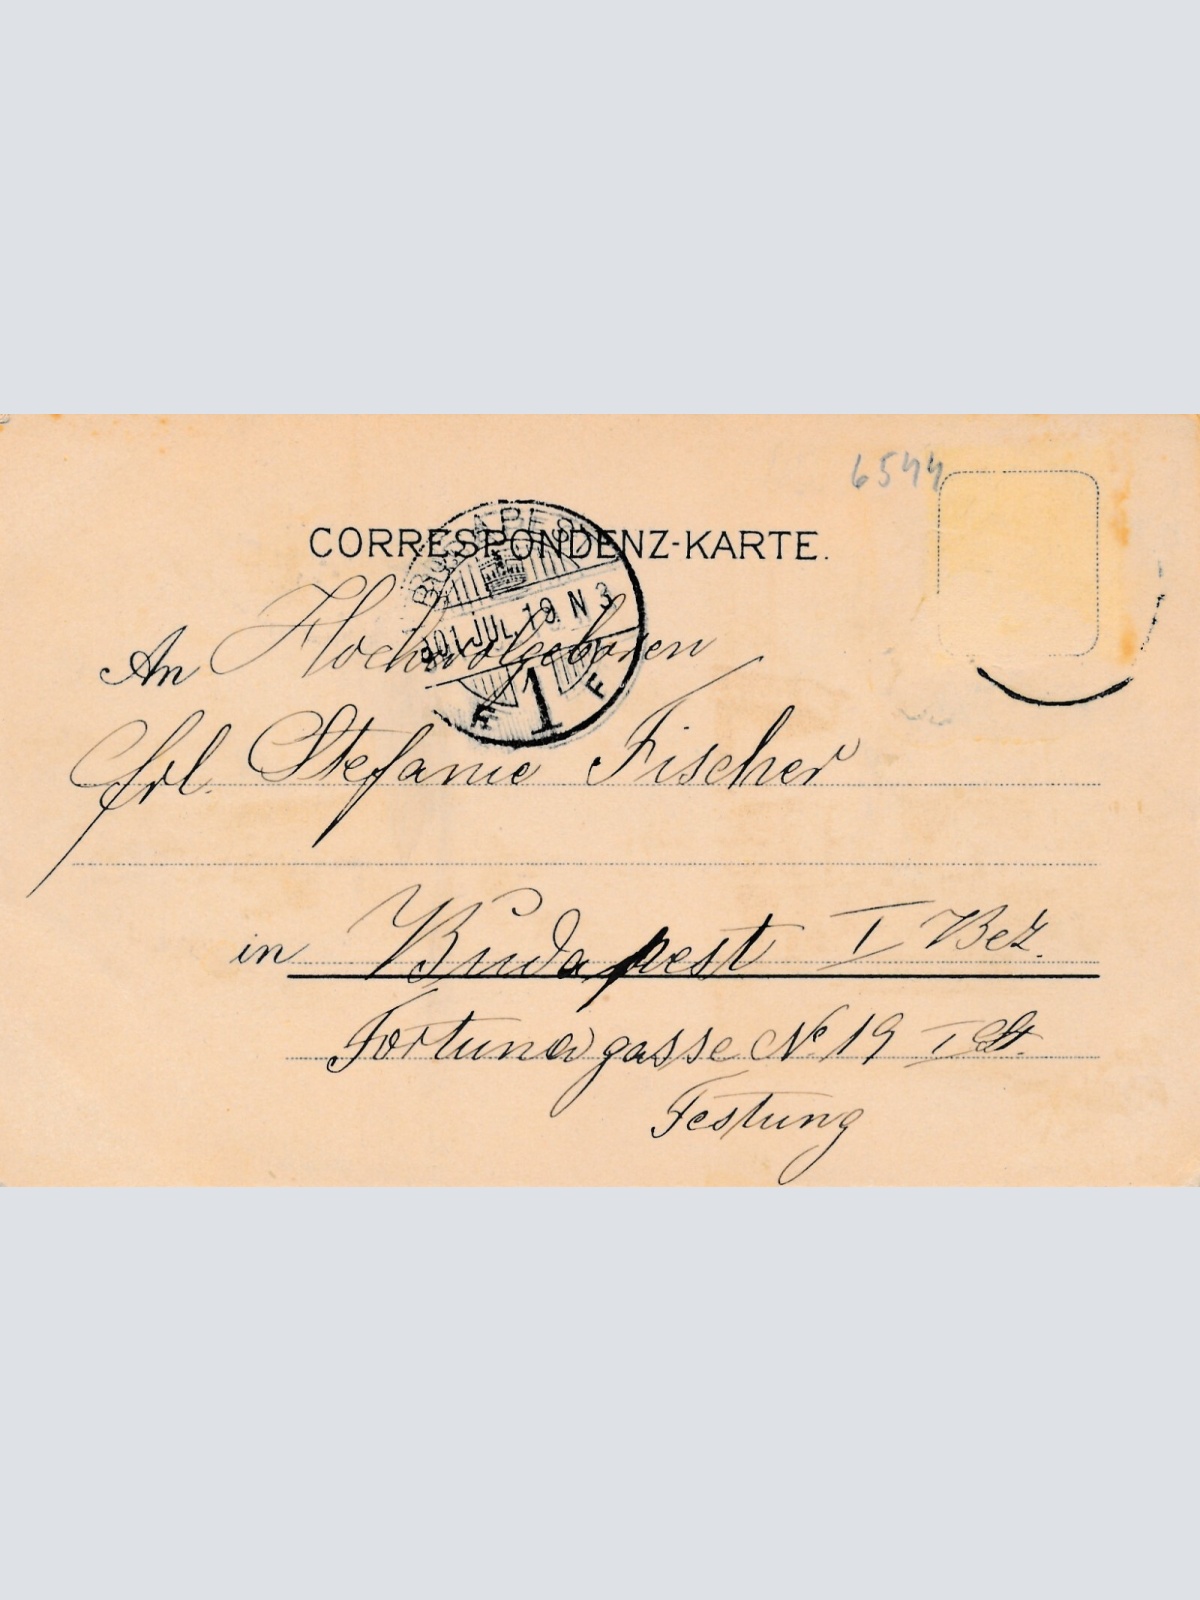 6544
CORRESPONDENZ-KARTE.
BUDAPEST
901 JUL 19 N 3
1
F F
An Hochwolgeboren
Frl. Stefanie Fischer
in Budapest I Bez.
Fortunagasse No 19 I St.
Festung